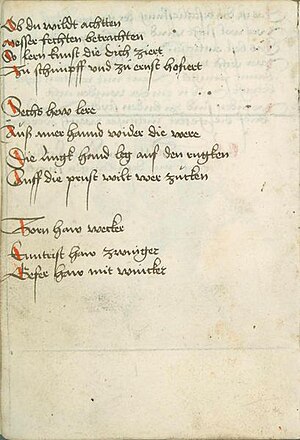 Ob du wildt achtten
messer fechten betrachten
So lern kunst die dich ziert
In schimpff und zu ernst hofiert
Sechs hew lere
Auß ainer hannd wider die were
Die lingk hand leg auf den rugken
Auff die prust wilt wer zucken
Zorn haw wecker
Enntrist haw zwinger
Gefer haw mit wincker